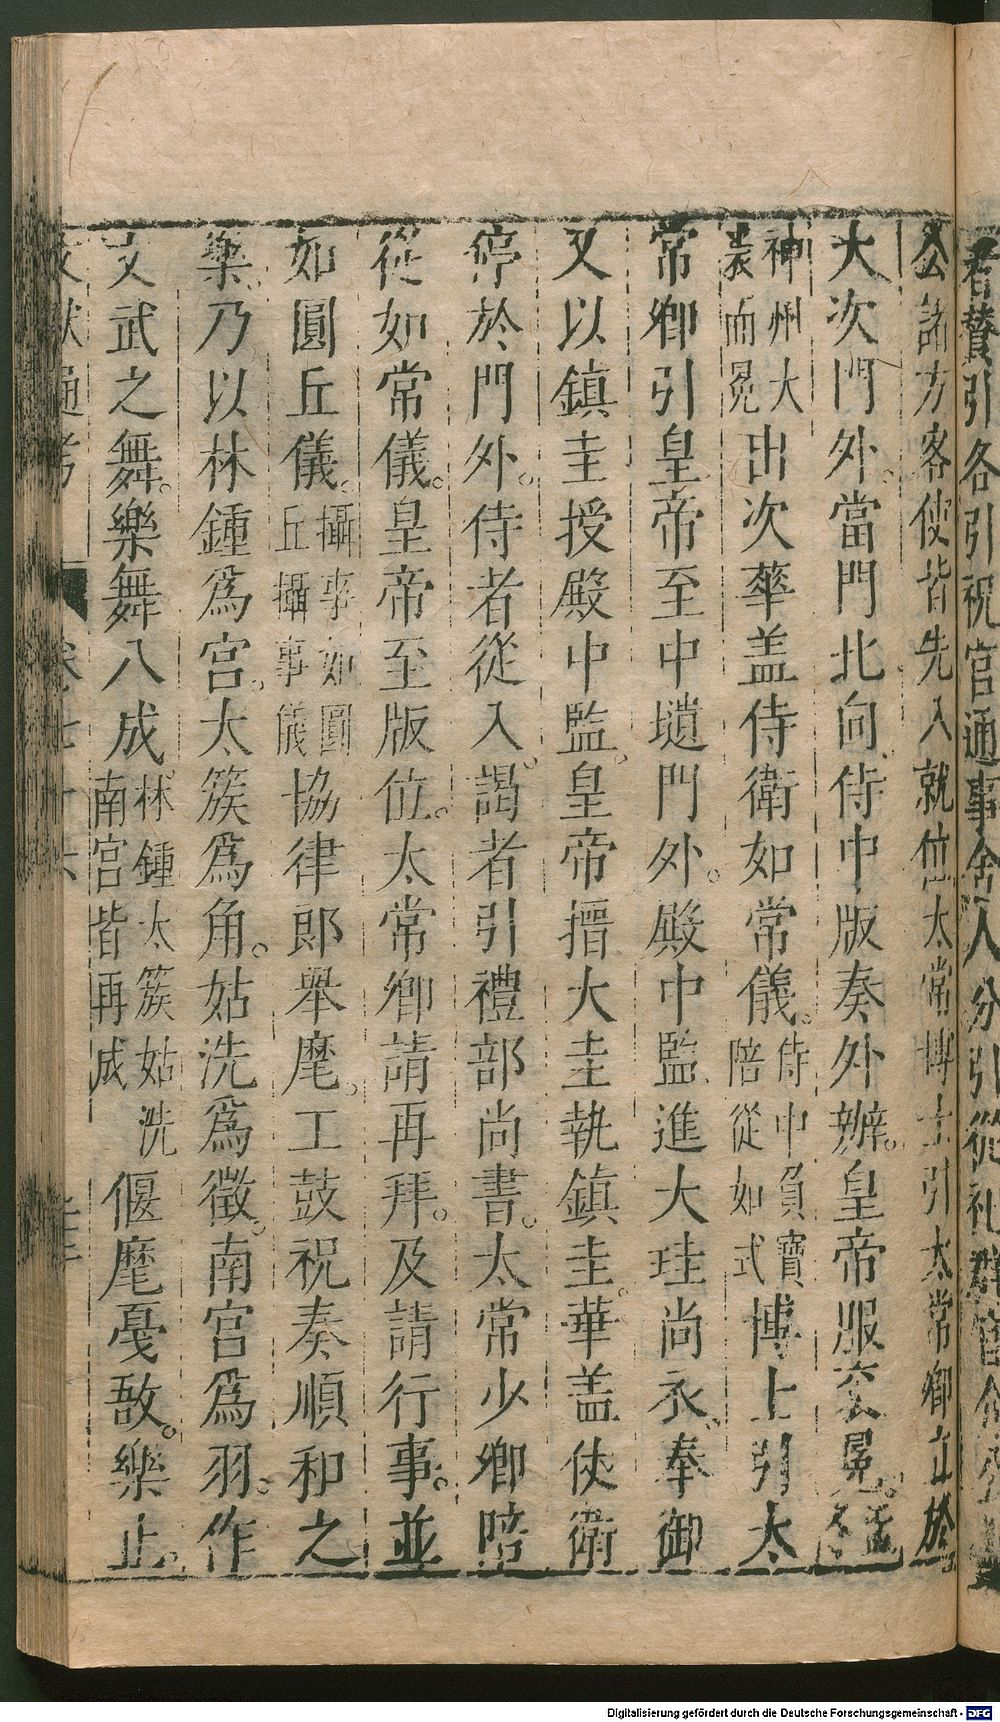 者贊引各引祝官通事舍人分引從祀群官
公諸方客使皆先入就位太常博士引太常卿立於
大次門外。當門北向。侍中版奏外辦。皇帝服衮冕。
神州大裘而冕出次華盖侍衛如常儀。侍中負寶陪從如式博士引太
常卿引皇帝至中壝門外。殿中監進大珪尚衣。奉御
又以鎮圭授殿中監。皇帝搢大圭執鎮圭。華盖仗衛
停於門外。侍者從入。謁者引禮部尚書。太常少卿陪
從如常儀。皇帝至版位。太常卿請再拜。及請行事。並
如圓丘儀。攝事如圓丘攝事儀協律郎舉麾。工鼓柷奏順和之
樂。乃以林鍾爲宫。太簇爲角。姑洗爲徵。南宫爲羽。作
文武之舞。樂舞八成。林鍾太簇姑洗南宫皆再成偃麾戞敔。樂止。
文獻通考 卷七十六
Digitalisierung gefördert durch die Deutsche Forschungsgemeinschaft - DFG